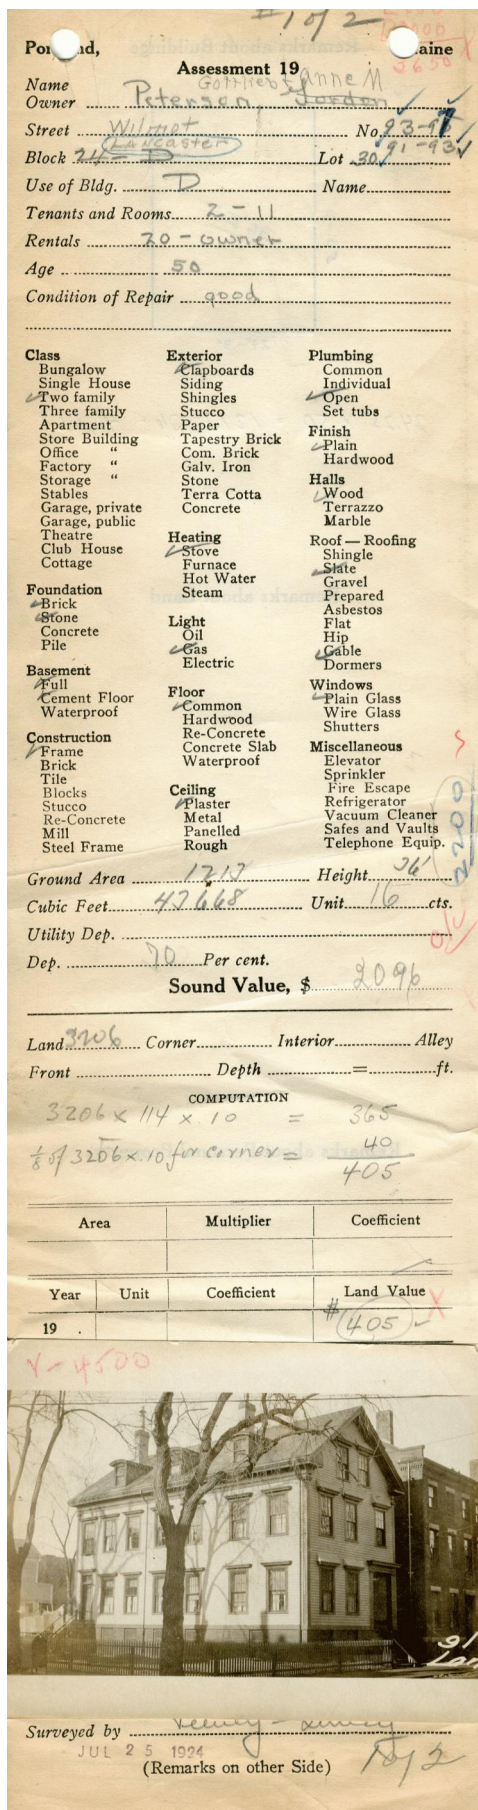 # 1 of 2
3650
Portland, Maine
Assessment 19
Gottlieb Anne M
Name
Owner Petersen, Jorden
Street Wilmot No. 93-95
Lancaster 91-93
Block 24-D Lot 30
Use of Bldg. D Name
Tenants and Rooms 2-11
Rentals 20-owner
Age 50
Condition of Repair good
Class
Bungalow
Single House
✓ Two family
Three family
Apartment
Store Building
Office "
Factory "
Storage "
Stables
Garage, private
Garage, public
Theatre
Club House
Cottage
Foundation
✓ Brick
✓ Stone
Concrete
Pile
Basement
✓ Full
✓ Cement Floor
Waterproof
Construction
✓ Frame
Brick
Tile
Blocks
Stucco
Re-Concrete
Mill
Steel Frame
Exterior
✓ Clapboards
Siding
Shingles
Stucco
Paper
Tapestry Brick
Com. Brick
Galv. Iron
Stone
Terra Cotta
Concrete
Heating
✓ Stove
Furnace
Hot Water
Steam
Light
Oil
✓ Gas
Electric
Floor
✓ Common
Hardwood
Re-Concrete
Concrete Slab
Waterproof
Ceiling
✓ Plaster
Metal
Panelled
Rough
Plumbing
Common
Individual
✓ Open
Set tubs
Finish
✓ Plain
Hardwood
Halls
✓ Wood
Terrazzo
Marble
Roof — Roofing
Shingle
✓ Slate
Gravel
Prepared
Asbestos
Flat
Hip
✓ Gable
Dormers
Windows
✓ Plain Glass
Wire Glass
Shutters
Miscellaneous
Elevator
Sprinkler
Fire Escape
Refrigerator
Vacuum Cleaner
Safes and Vaults
Telephone Equip.
2200
Ground Area 1213 Height 36
Cubic Feet 43668 Unit 16 cts.
Utility Dep.
Dep. 70 Per cent.
Sound Value, $ 2096
Land 3206 Corner Interior Alley
Front Depth = ft.
COMPUTATION
3206 x 114 x 10 = 365
1/8 of 3206 x .10 for corner = 40
405
Area Multiplier Coefficient
Year Unit Coefficient Land Value
19 . $ 405 ✓
V-4500
91
Surveyed by
JUL 25 1924
(Remarks on other Side)
1 of 2